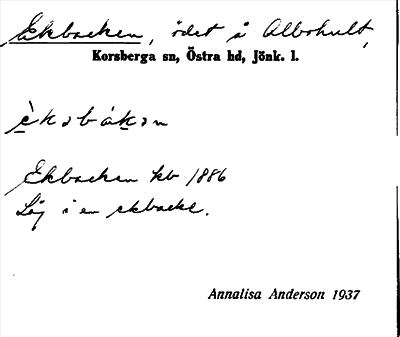 Ekbacken, ödet å Albohult,
Korsberga sn, Östra hd, Jönk. l.
èkɔbákɔn
Ekbacken kb 1886
Låg i en ekbacke.
Annalisa Anderson 1937